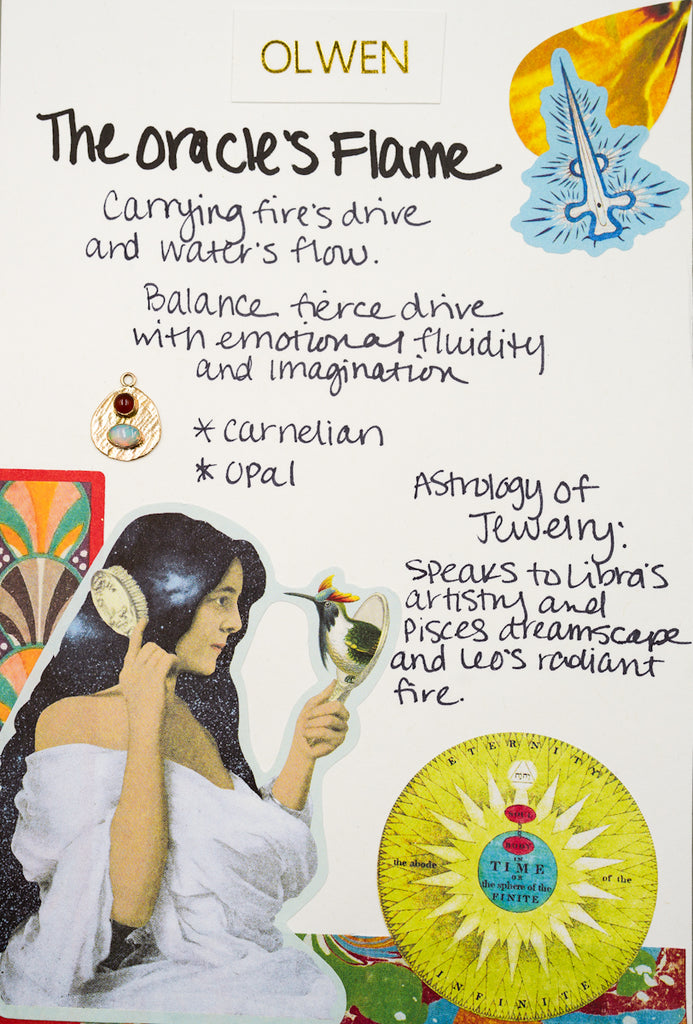 OLWEN
The Oracle's Flame
Carrying fire's drive
and water's flow.
Balance fierce drive
with emotional fluidity
and imagination
* Carnelian
* Opal
Astrology of
Jewelry:
Speaks to Libra's
artistry and
Pisces dreamscape
and Leo's radiant
fire.
ETERNITY
יהוה
SOUL
BODY
IN
TIME
OR
the sphere of the
FINITE
the abode
of the
INFINITE